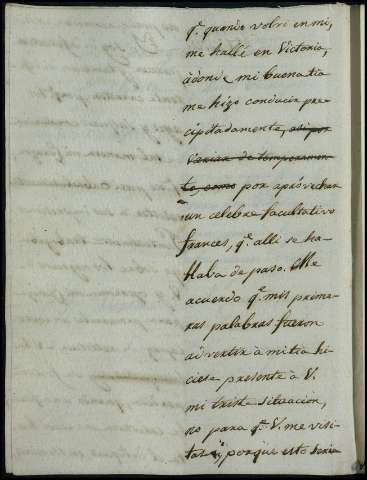 q.e quando volvi en mi,
me hallé en Victoria,
adonde mi buena tia
me hizo conducir pre-
cipitadamente, asi por
variar de temperamen-
to, como por aprovechar
un célebre facultativo
frances, q.e alli se ha-
llaba de paso. Me
acuerdo q.e mis prime-
ras palabras fueron
advertir à mi tia hi-
ciese presente à V.
mi triste situacion,
no para q.e V. me visi-
tas porque esto seria